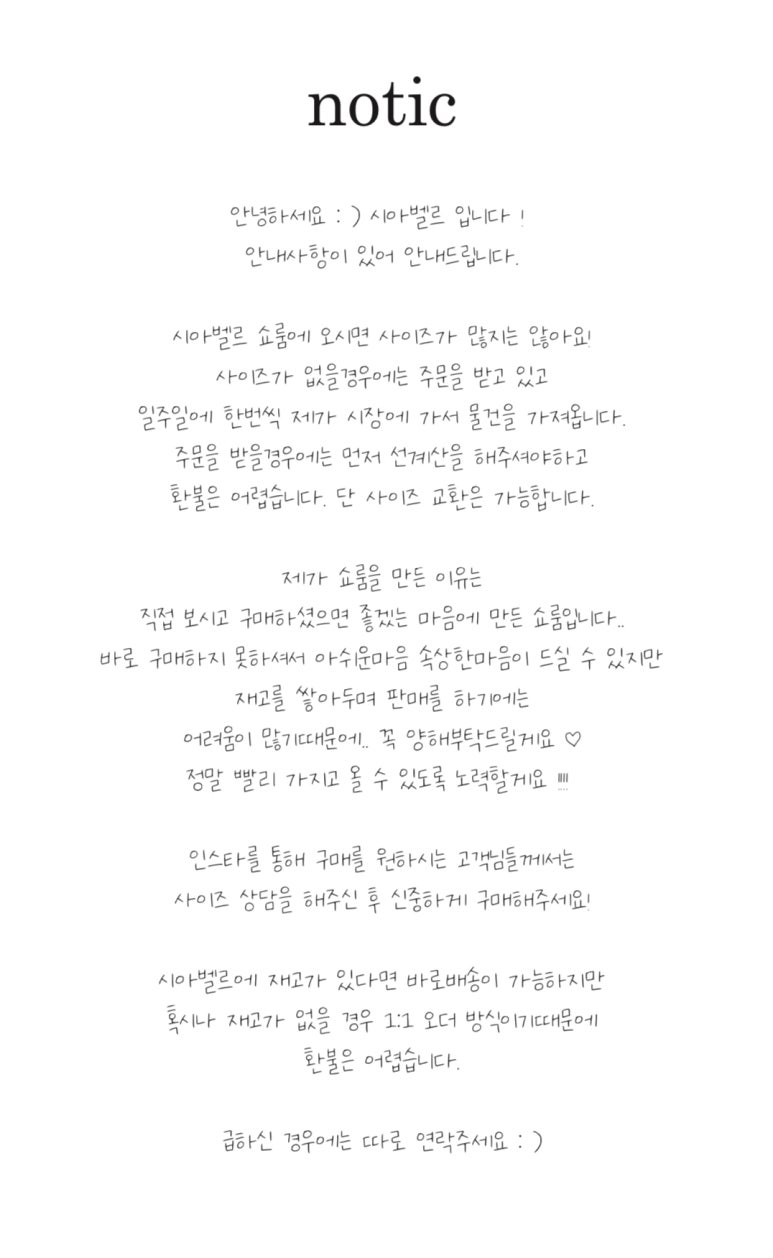 notic
안녕하세요 : ) 시아벨르 입니다 !
안내사항이 있어 안내드립니다.
시아벨르 쇼룸에 오시면 사이즈가 많지는 않아요!
사이즈가 없을경우에는 주문을 받고 있고
일주일에 한번씩 제가 시장에 가서 물건을 가져옵니다.
주문을 받을경우에는 먼저 선계산을 해주셔야하고
환불은 어렵습니다. 단 사이즈 교환은 가능합니다.
제가 쇼룸을 만든 이유는
직접 보시고 구매하셨으면 좋겠는 마음에 만든 쇼룸입니다..
바로 구매하지 못하셔서 아쉬운마음 속상한마음이 드실 수 있지만
재고를 쌓아두며 판매를 하기에는
어려움이 많기때문에.. 꼭 양해부탁드릴게요 ♡
정말 빨리 가지고 올 수 있도록 노력할게요 !!!!
인스타를 통해 구매를 원하시는 고객님들께서는
사이즈 상담을 해주신 후 신중하게 구매해주세요!
시아벨르에 재고가 있다면 바로배송이 가능하지만
혹시나 재고가 없을 경우 1:1 오더 방식이기때문에
환불은 어렵습니다.
급하신 경우에는 따로 연락주세요 : )